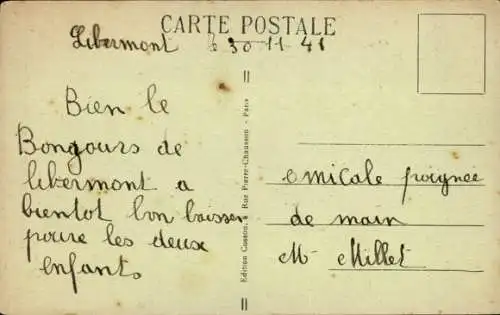 CARTE POSTALE
Libermont le 30-11-41
Bien le
Bongours de
libermont a
bientot bon baisser
poure les deux
enfants
Edition Cosson, Rue Pierre-Chausson - Paris
amicale poignee
de main
Mr Millet